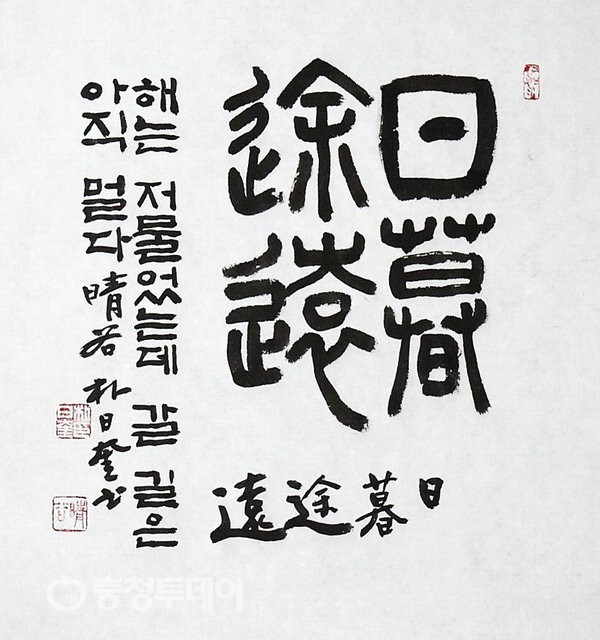 日暮
途遠
日暮途遠
해는 저물었는데 갈 길은
아직 멀다 晴谷 朴日奎書
충청투데이